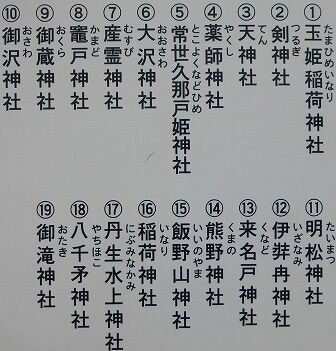 ①玉姫稲荷神社
たまひめいなり
②剣神社
つるぎ
③天神社
てん
④薬師神社
やくし
⑤常世久那戸姫神社
とこよくなどひめ
⑥大沢神社
おおさわ
⑦産霊神社
むすび
⑧竈戸神社
かまど
⑨御蔵神社
おくら
⑩御沢神社
おさわ
⑪明松神社
たいまつ
⑫伊弉冉神社
いざなみ
⑬来名戸神社
くなど
⑭熊野神社
くまの
⑮飯野山神社
いいのやま
⑯稲荷神社
いなり
⑰丹生水上神社
にぶみなかみ
⑱八千矛神社
やちほこ
⑲御滝神社
おたき